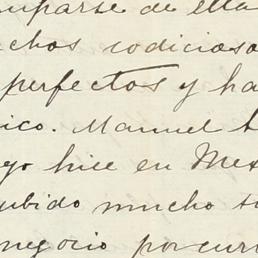 uparse de ella
chos codicioso
perfectos y ha
ico. Manuel
yo hice en Mex
ubido mucho
negocio por cur